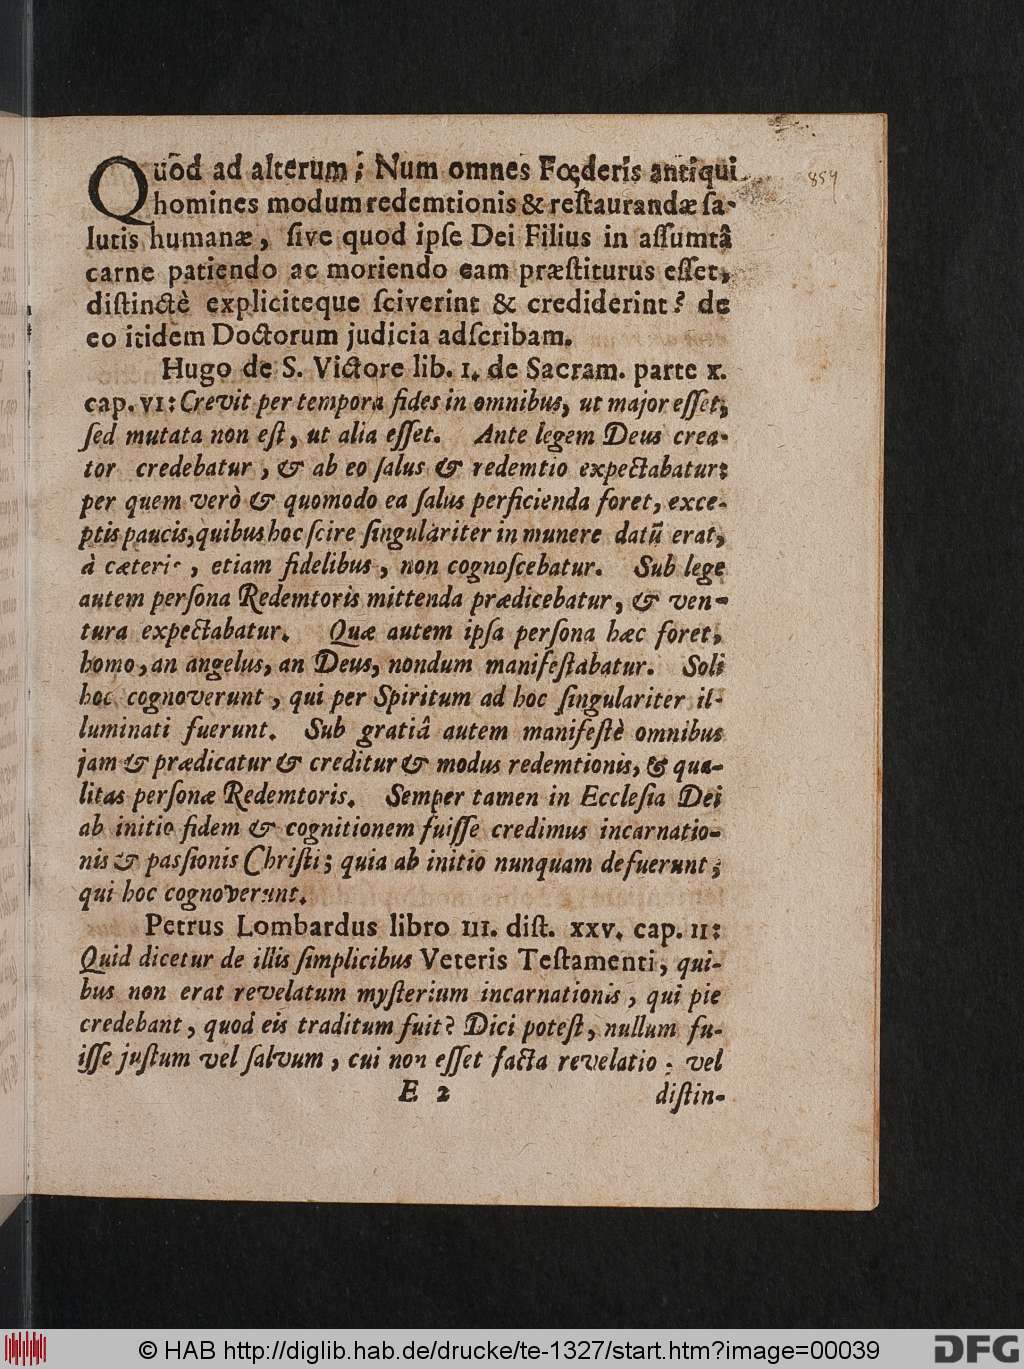 Quōd ad alterum; Num omnes Fœderis antiqui
homines modum redemtionis & reſtaurandæ ſa-
lutis humanæ, ſive quod ipſe Dei Filius in aſſumtâ
carne patiendo ac moriendo eam præſtiturus eſſet,
diſtinctè expliciteque ſciverint & crediderint? de
eo itidem Doctorum judicia adſcribam.
Hugo de S. Victore lib. I. de Sacram. parte X.
cap. VI: Crevit per tempora fides in omnibus, ut major eſſet;
ſed mutata non eſt, ut alia eſſet. Ante legem Deus crea-
tor credebatur, & ab eo ſalus & redemtio expectabatur:
per quem verò & quomodo ea ſalus perficienda foret, exce-
ptis paucis, quibus hoc ſcire ſingulariter in munere datū erat,
à cæteris, etiam fidelibus, non cognoſcebatur. Sub lege
autem perſona Redemtoris mittenda prædicebatur, & ven-
tura expectabatur. Quæ autem ipſa perſona hæc foret,
homo, an angelus, an Deus, nondum manifeſtabatur. Soli
hoc cognoverunt, qui per Spiritum ad hoc ſingulariter il-
luminati fuerunt. Sub gratiâ autem manifeſtè omnibus
jam & prædicatur & creditur & modus redemtionis, & qua-
litas perſonæ Redemtoris. Semper tamen in Eccleſia Dei
ab initio fidem & cognitionem fuiſſe credimus incarnatio-
nis & paſſionis Chriſti; quia ab initio nunquam defuerunt;
qui hoc cognoverunt.
Petrus Lombardus libro III. diſt. XXV. cap. II:
Quid dicetur de illis ſimplicibus Veteris Teſtamenti, qui-
bus non erat revelatum myſterium incarnationis, qui pie
credebant, quod eis traditum fuit? Dici poteſt, nullum fu-
iſſe juſtum vel ſalvum, cui non eſſet facta revelatio; vel
E 2 diſtin-
859
© HAB http://diglib.hab.de/drucke/te-1327/start.htm?image=00039
DFG